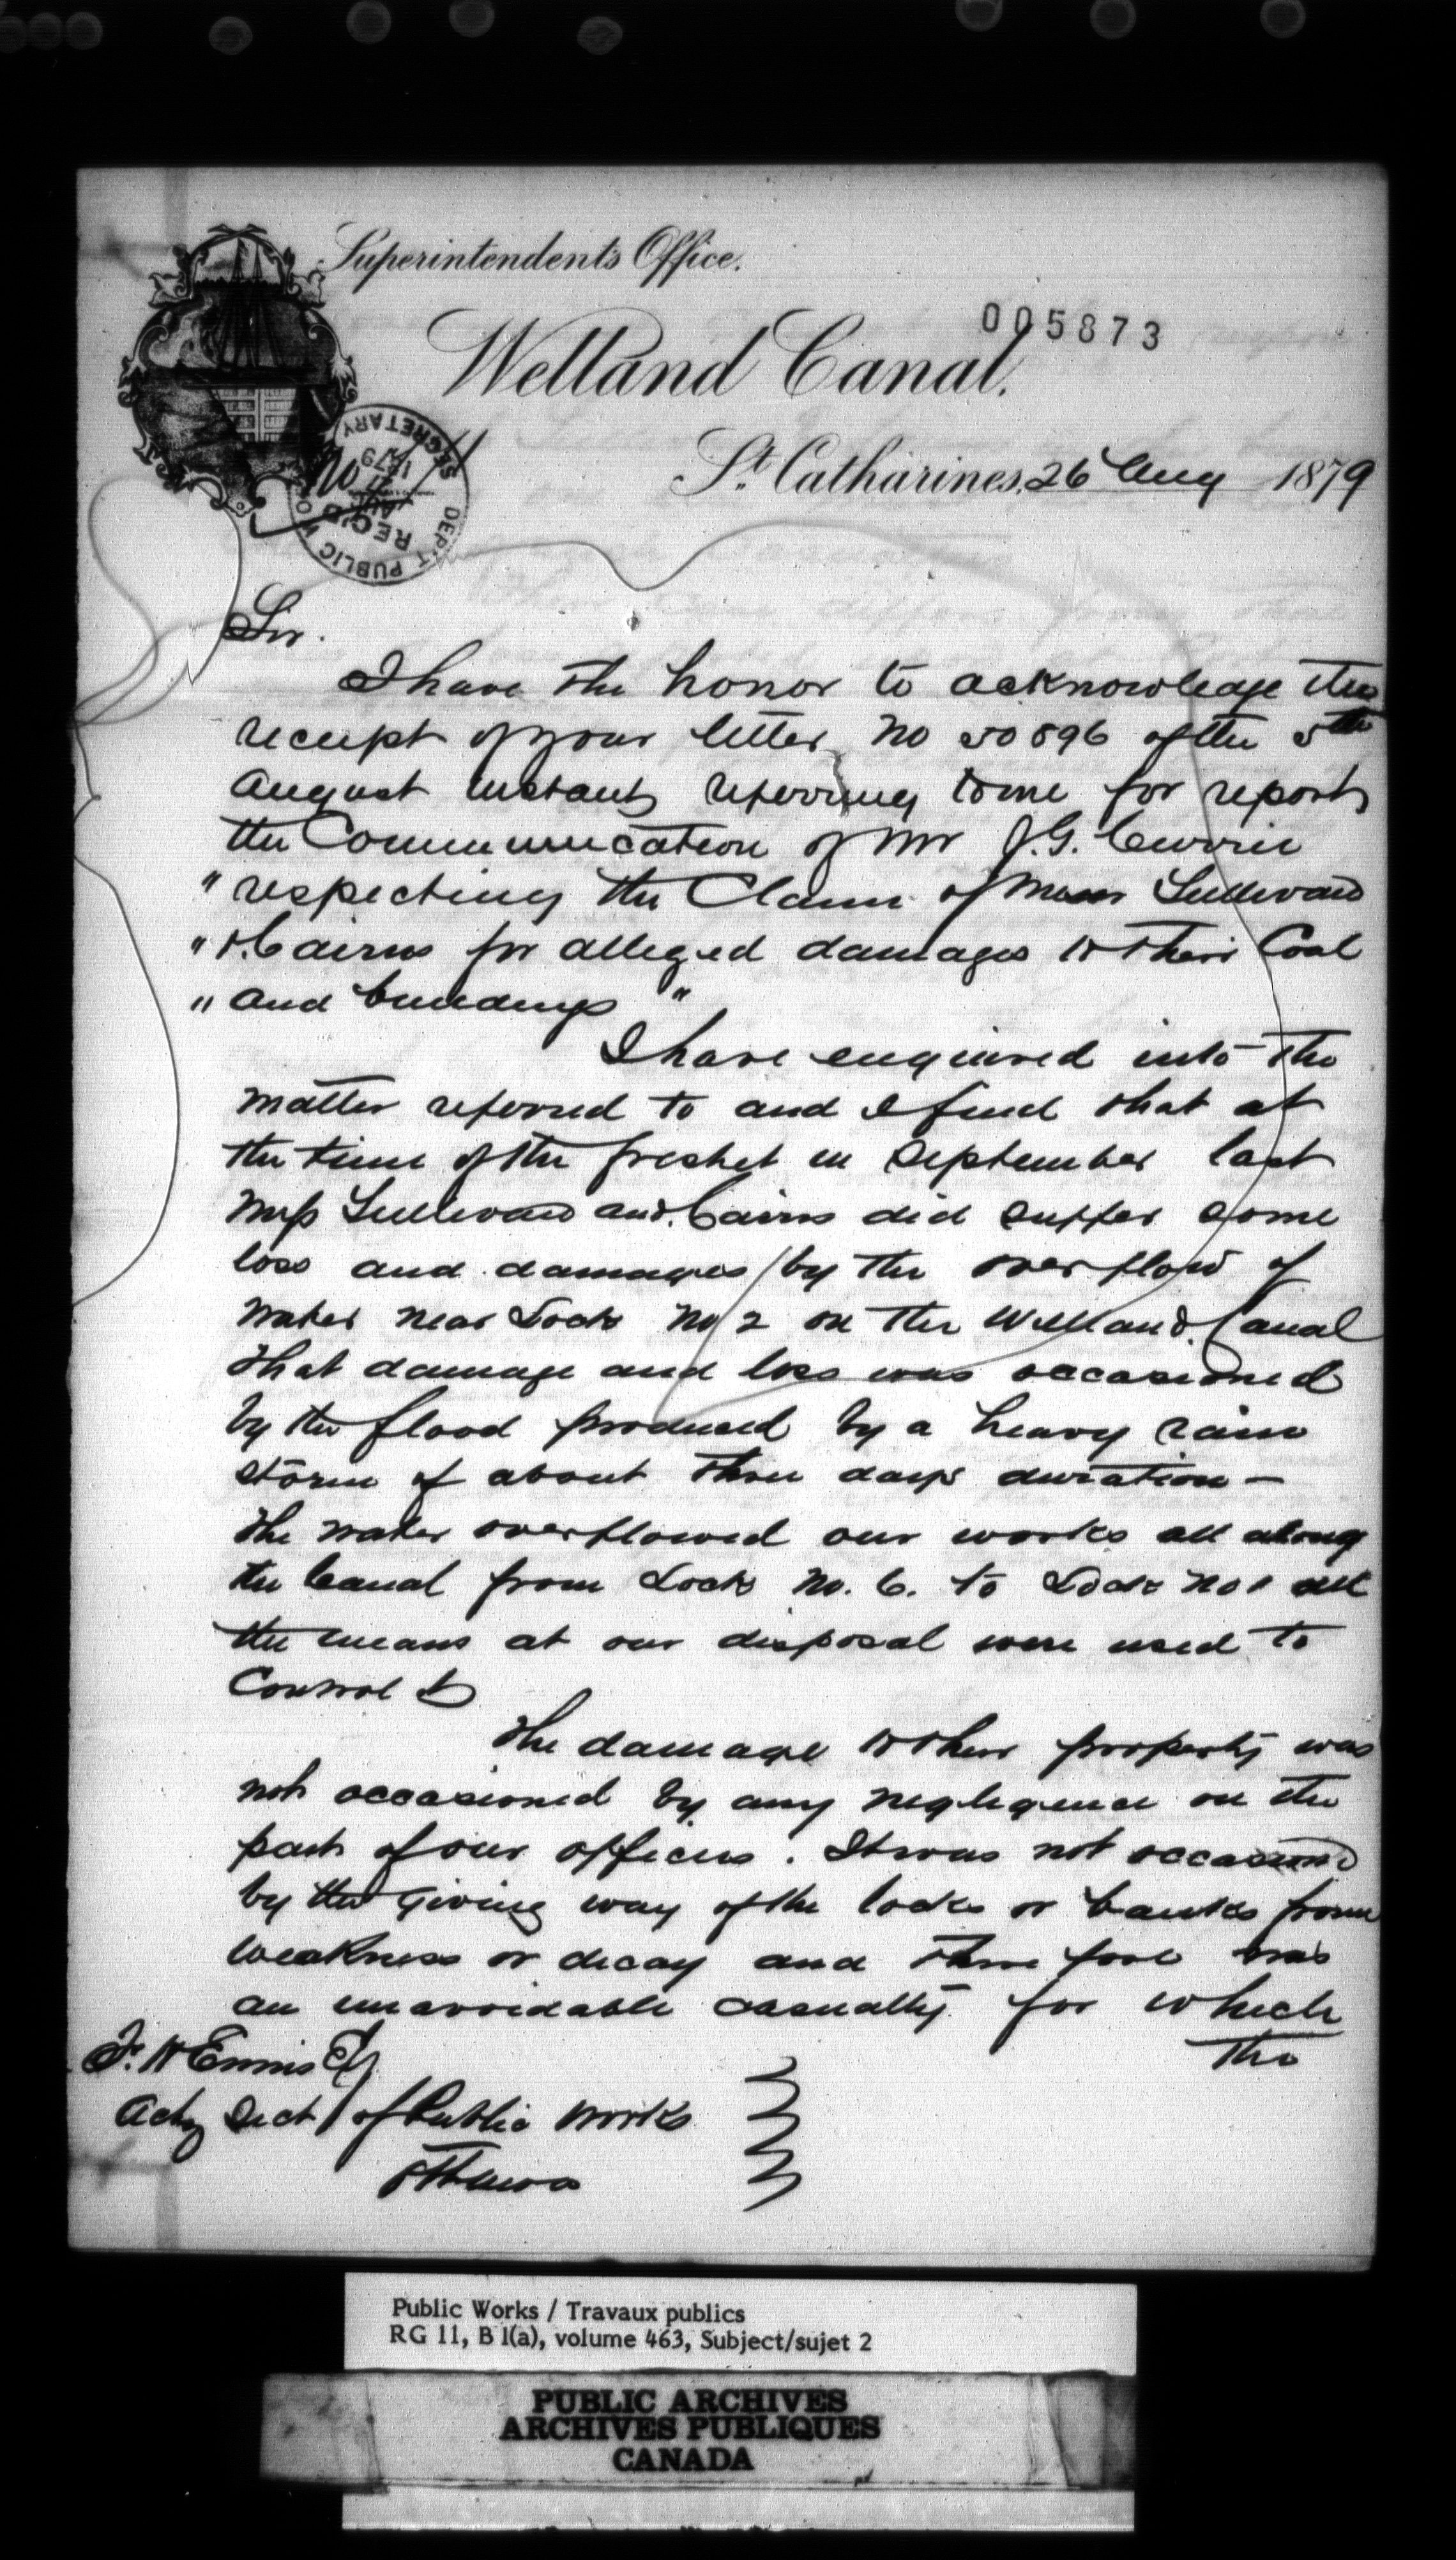 Superintendent's Office.
005873
Welland Canal.
St. Catharines, 26 Aug 1879
DEP'T PUBLIC WORKS
SECRETARY
REC'D
AUG
1879
Sir.
I have the honor to acknowledge the
receipt of your letter No 50896 of the 5th
August instant referring to me for report
the Communication of Mr J. G. Currie
" respecting the Claim of Messrs Sullivan
" & Cairns for alleged damages to their Coal
" and buildings "
I have enquired into the
matter referred to and I find that at
the time of the freshet in September last
Mess Sullivan and Cairns did suffer some
loss and damages by the overflow of
water near Lock No 2 on the Welland Canal
That damage and loss was occasioned
by the flood produced by a heavy rain
storm of about three days duration —
The water overflowed our works all along
the Canal from Lock No. 6. to Lock No 1 all
the means at our disposal were used to
Control it
The damage to their property was
not occasioned by any negligence on the
part of our officers. It was not occasioned
by the giving way of the locks or banks from
weakness or decay and therefore was
an unavoidable casualty for which
the
F. H Ennis Esq
Actg Sect of Public Works
Ottawa
Public Works / Travaux publics
RG 11, B 1(a), volume 463, Subject/sujet 2
PUBLIC ARCHIVES
ARCHIVES PUBLIQUES
CANADA